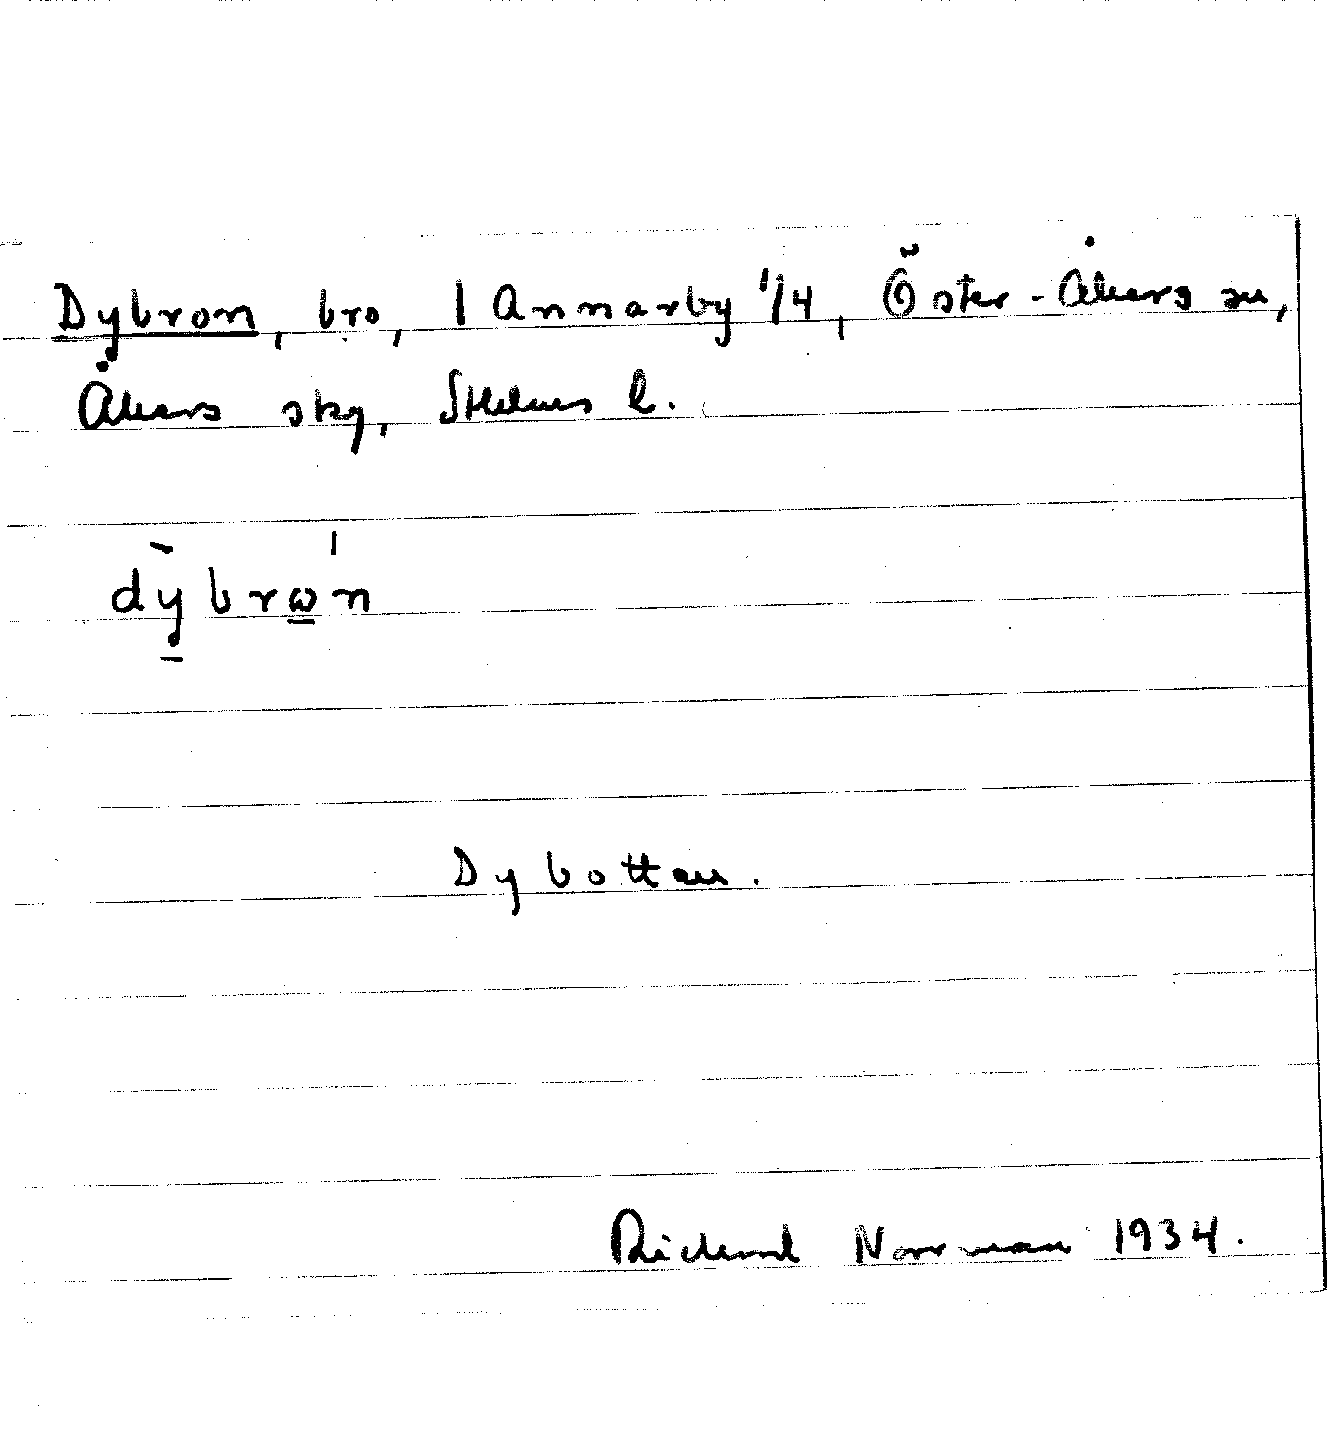 Dybron, bro, 1 Annarby 1/4, Öster-Åkers sn,
Åkers skg, Sthlms l.
dỳ̠brώ̠n
Dybotten.
Richard Norrman 1934.